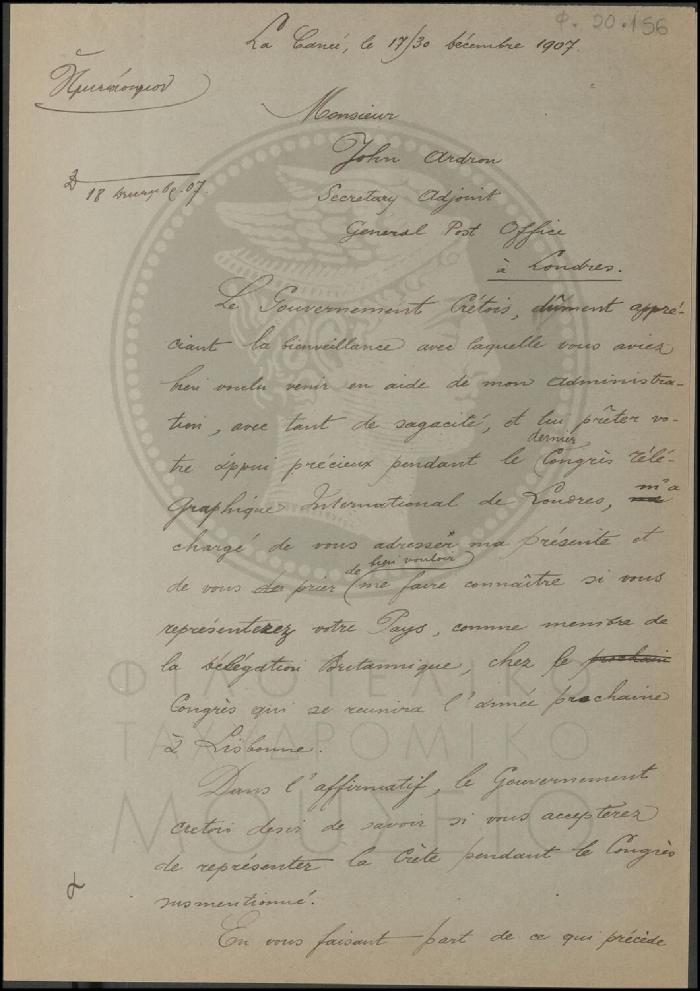 Φ. 20.156
La Canée, le 17/30 Décembre 1907.
Ἡμιεπίσημον
Monsieur
John Ardron
18 07.
Secretary Adjoint
General Post Office
à Londres.
Le Gouvernement Crétois, dûment appré-
ciant la bienveillance avec laquelle vous aviez
bien voulu venir en aide de mon administra-
tion, avec tant de sagacité, et lui prêter vo-
dernier
tre appui précieux pendant le Congrès Télé-
graphique International de Londres, m'a
chargé de vous adresser ma présente et
de bien vouloir
de vous prier me faire connaître si vous
représenterez votre Pays, comme membre de
la délégation Britannique, chez le prochain
Congrès qui se reunira l'année prochaine
à Lisbonne.
Dans l'affirmatif, le Gouvernement
cretois desir de savoir si vous accepterez
de représenter la Crète pendant le Congrès
susmentionné.
En vous faisant part de ce qui précède
ΦΙΛΟΤΕΛΙΚΟ
ΤΑΧΥΔΡΟΜΙΚΟ
ΜΟΥΣΕΙΟ